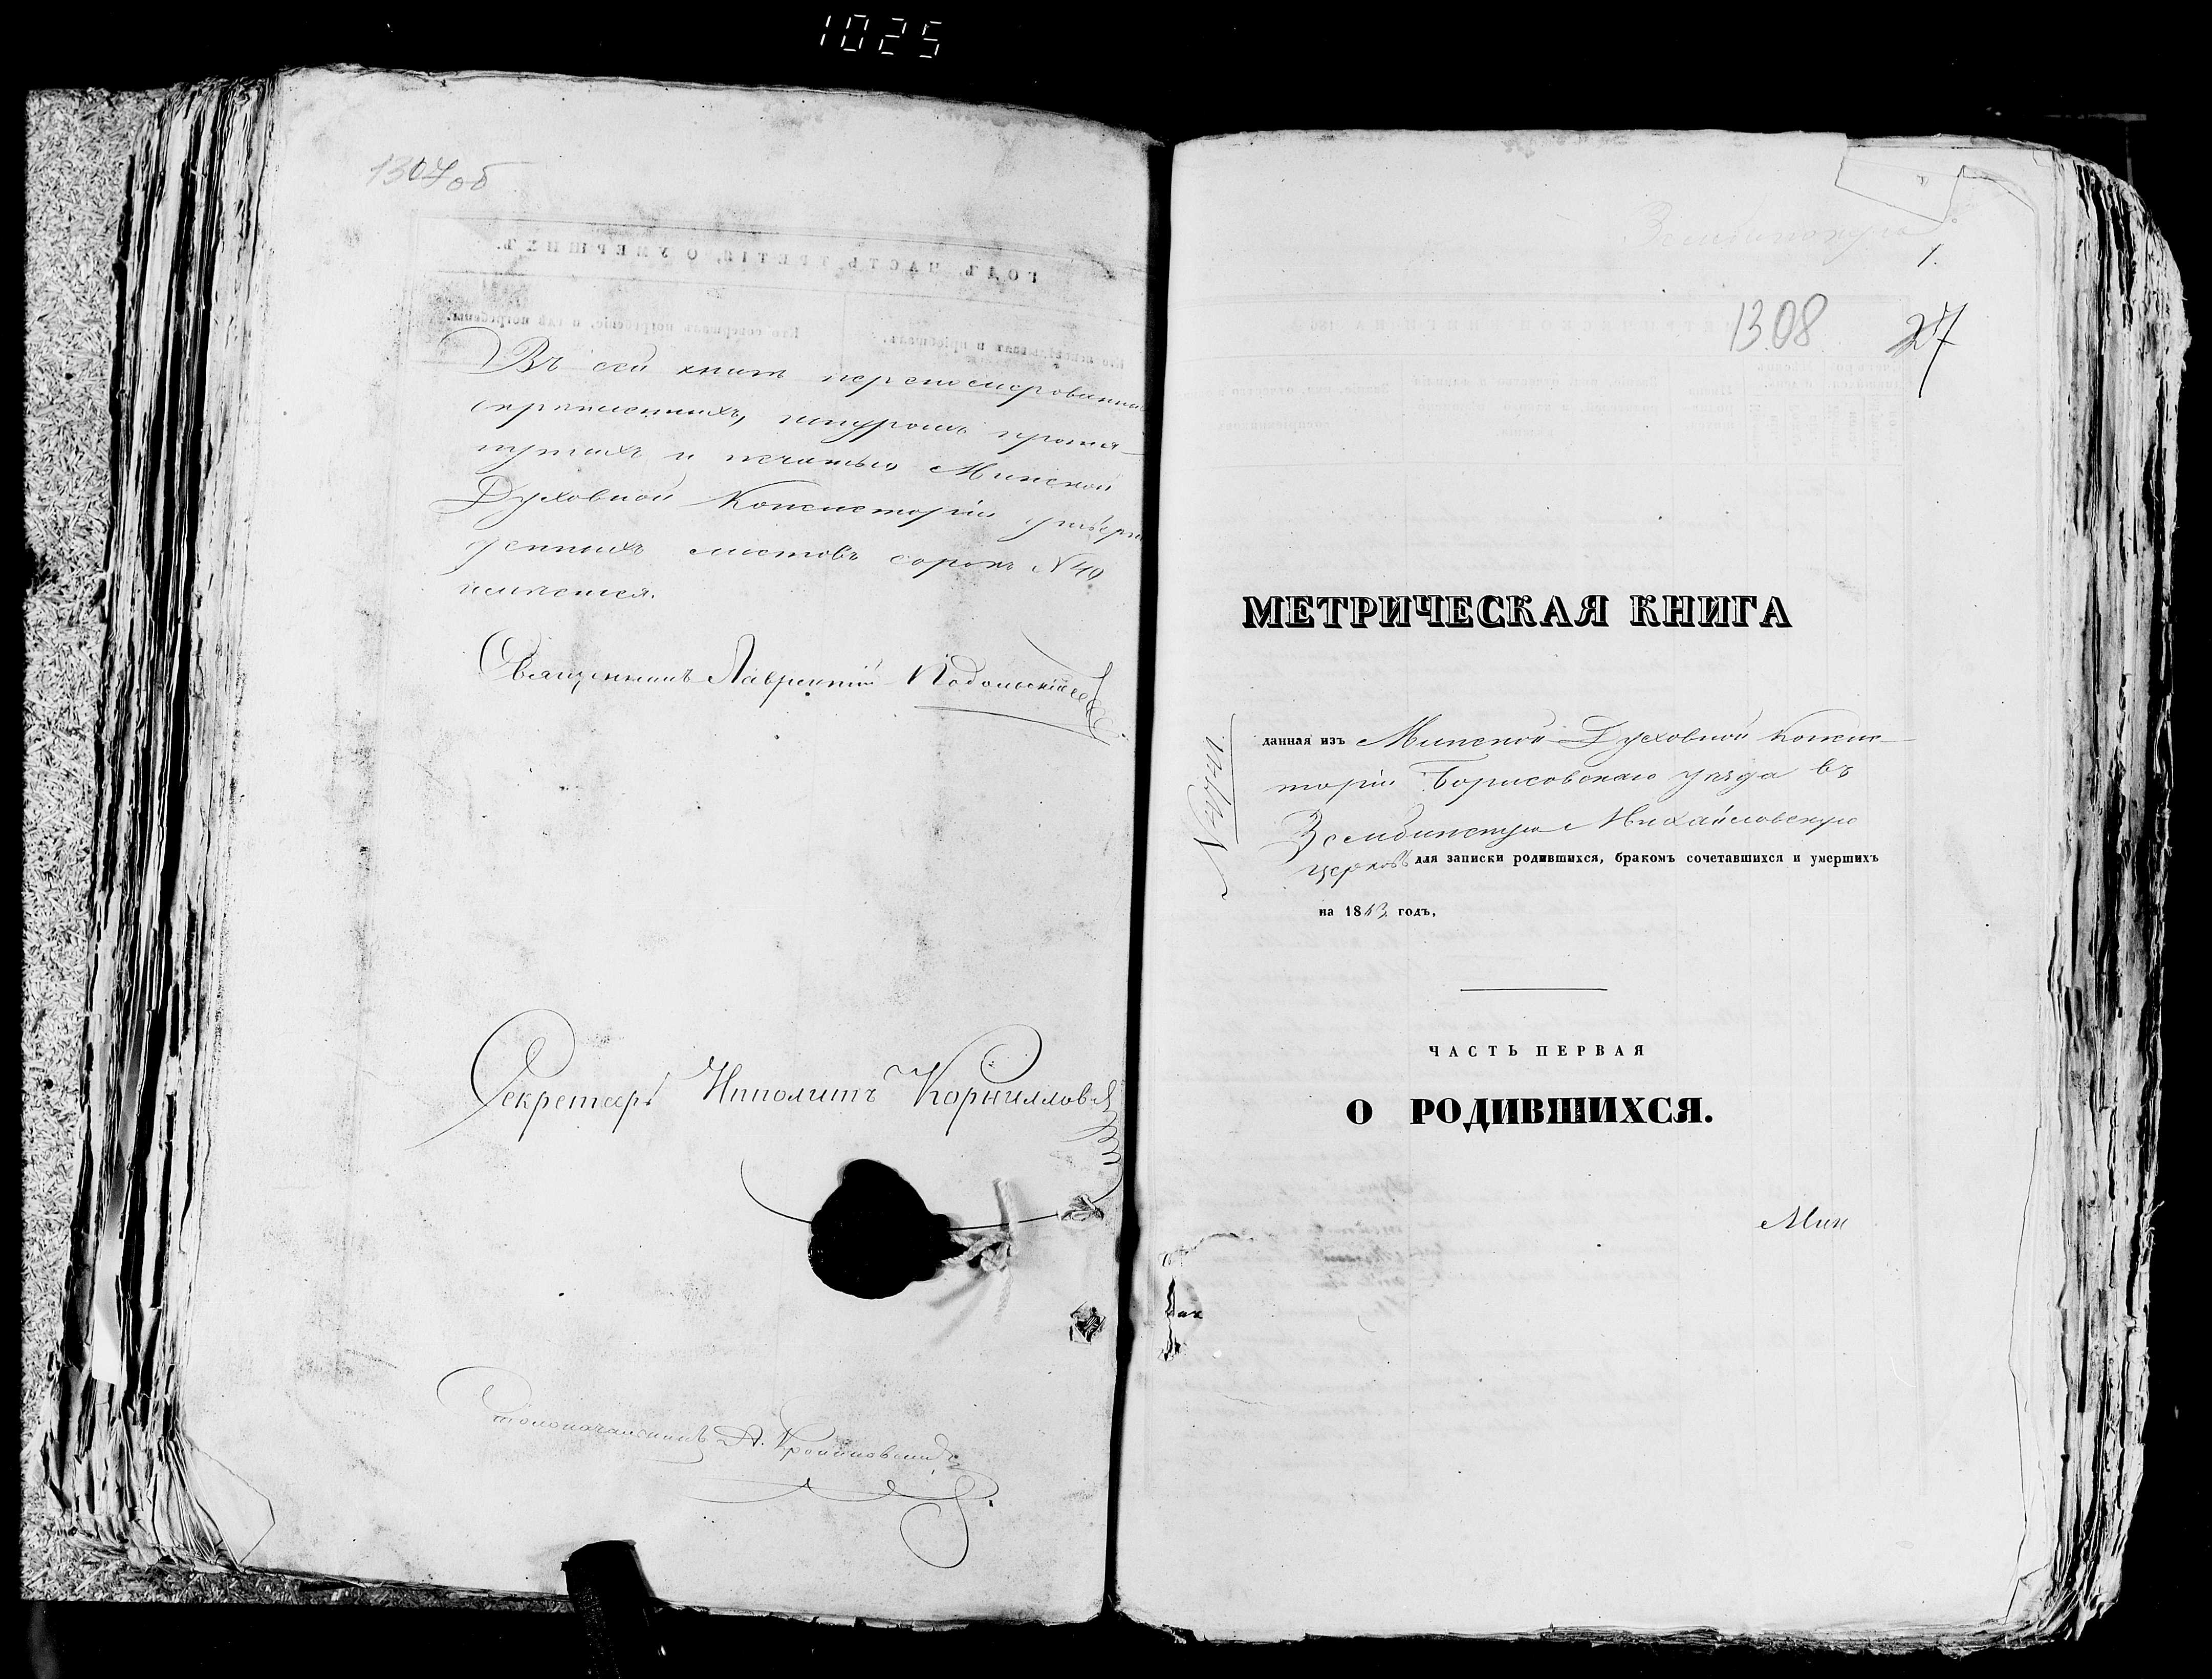 1025
1307 об
Въ сей книгѣ перенумерованныхъ
скрѣпленныхъ, шнуромъ протя-
нутыхъ и печатью Минской
Духовной Консисторіи утверж
денныхъ листовъ сорокъ N 40
имѣется.
Священникъ Лаврентій Подольскій
Секретарь Ипполитъ Корнилловъ
Столоначальникъ А.
Зембинскую
1.
1308 27
МЕТРИЧЕСКАЯ КНИГА
данная изъ Минской Духовной Консис-
торіи Борисовскаго уѣзда въ
Зембинскую Михайловскую
церковь для записки родившихся, бракомъ сочетавшихся и умершихъ
на 1843 годъ.
ЧАСТЬ ПЕРВАЯ
О РОДИВШИХСЯ.
Мин